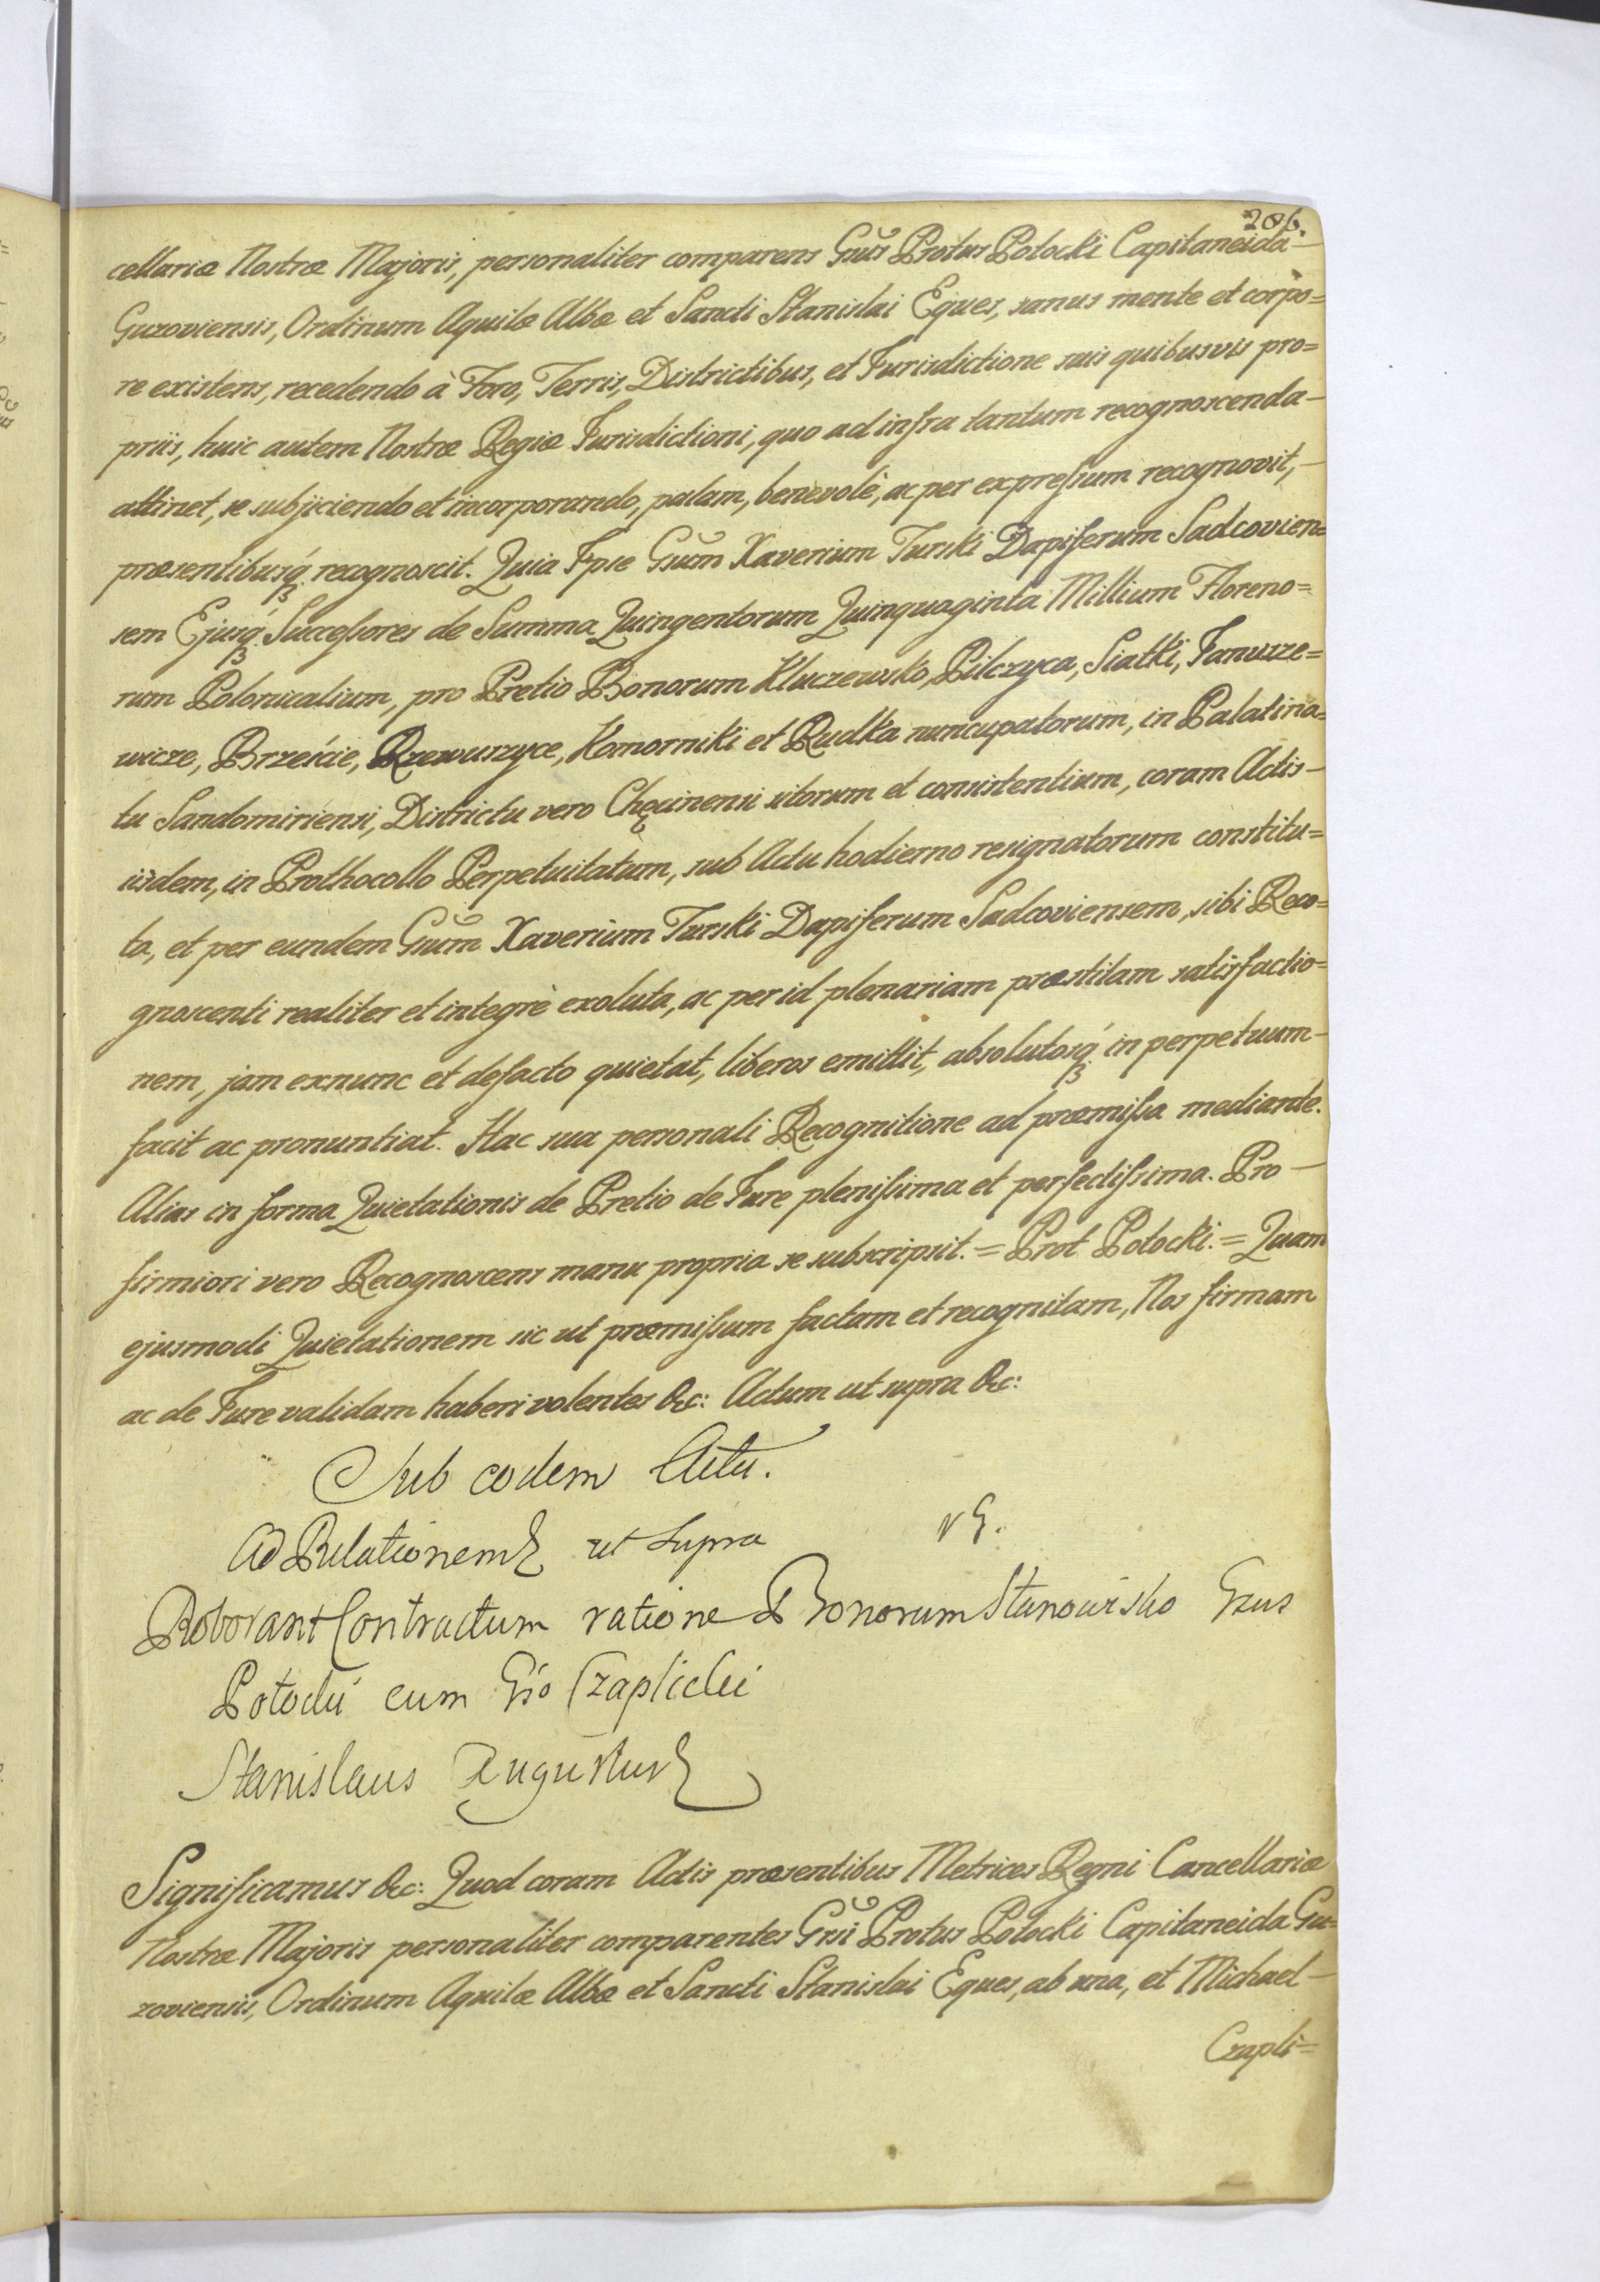 206.
cellariæ Nostræ Majoris, personaliter comparens Gsus Protus Potocki Capitaneida
Guzoviensis, Ordinum Aquilæ Albæ et Sancti Stanislai Eques, sanus mente et corpo=
re existens, recedendo à Foro, Terris, Districtibus, et Jurisdictione suis quibusvis pro=
priis, huic autem Nostræ Regiæ Jurisdictioni, quo ad infra tantum recognoscenda
attinet, se subjiciendo et incorporando, palam, benevolè, ac per expressum recognovit,
præsentibusq́ recognoscit. Quia Ipse Gsum Xaverium Turski Dapiferum Sadcovien=
sem Ejusq́ Successores de Summa Quingentorum Quinquaginta Millium Floreno=
rum Polonicalium, pro Pretio Bonorum Kluczewsko, Pilczyca, Siatki, Janusze=
wicze, Brzeście, Rzewuszyce, Komorniki et Rudka nuncupatorum, in Palatina=
tu Sandomiriensi, Districtu vero Chęcinensi sitorum et consistentium, coram Actis
iisdem, in Prothocollo Perpetuitatum, sub Actu hodierno resignatorum constitu=
ta, et per eundem Gsum Xaverium Turski Dapiferum Sadcoviensem, sibi Reco=
gnoscenti realiter et integrè exoluta, ac per id plenariam præstitam satisfactio=
nem, jam exnunc et defacto quietat, liberos emittit, absolutosq́ in perpetuum
facit ac pronuntiat. Hac sua personali Recognitione ad præmissa mediante.
Alias in forma Quietationis de Pretio de Jure plenissima et perfectissima. Pro
firmiori vero Recognoscens manu propria se subscripsit. = Prot Potocki. = Quam
ejusmodi Quietationem sic ut præmissum factam et recognitam, Nos firmam
ac de Jure validam haberi volentes &c: Actum ut supra &c:
Sub eodem Actu.
Ad Relationem ut supra
Roborant Contractum ratione Bonorum Stanowisko Gsus
Potocki cum Gso Czaplicki
Stanislaus Augustus
Significamus &c: Quod coram Actis præsentibus Metrices Regni Cancellariæ
Nostræ Majoris personaliter comparentes Gsi Protus Potocki Capitaneida Gu=
zoviensis, Ordinum Aquilæ Albæ et Sancti Stanislai Eques, ab una, et Michael
Czapli=